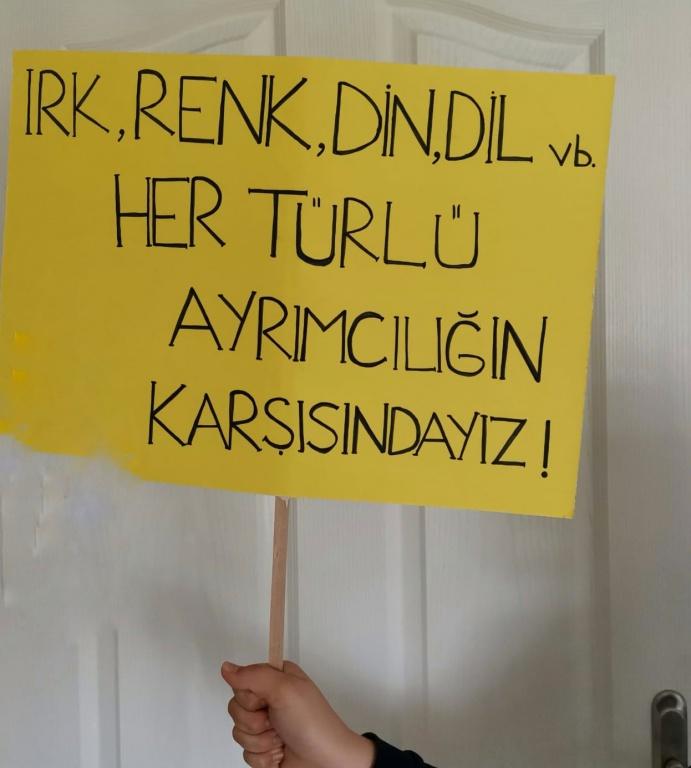 IRK, RENK, DİN, DİL vb.
HER TÜRLÜ
AYRIMCILIĞIN
KARŞISINDAYIZ!